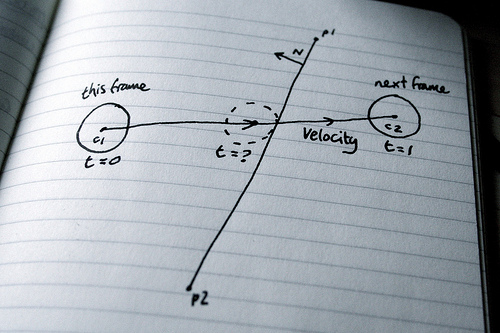 p1
N
this frame
next frame
c1
c2
t=0
t=?
Velocity
t=1
p2